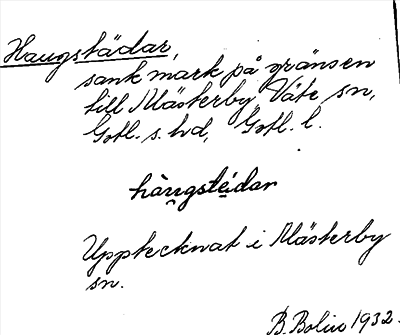 Haugstädar,
sank mark på gränsen
till Mästerby Väte sn,
Gotl. s. hd, Gotl. l.
hàu̯gstédar
Upptecknat i Mästerby
sn.
B. Bolin 1932.